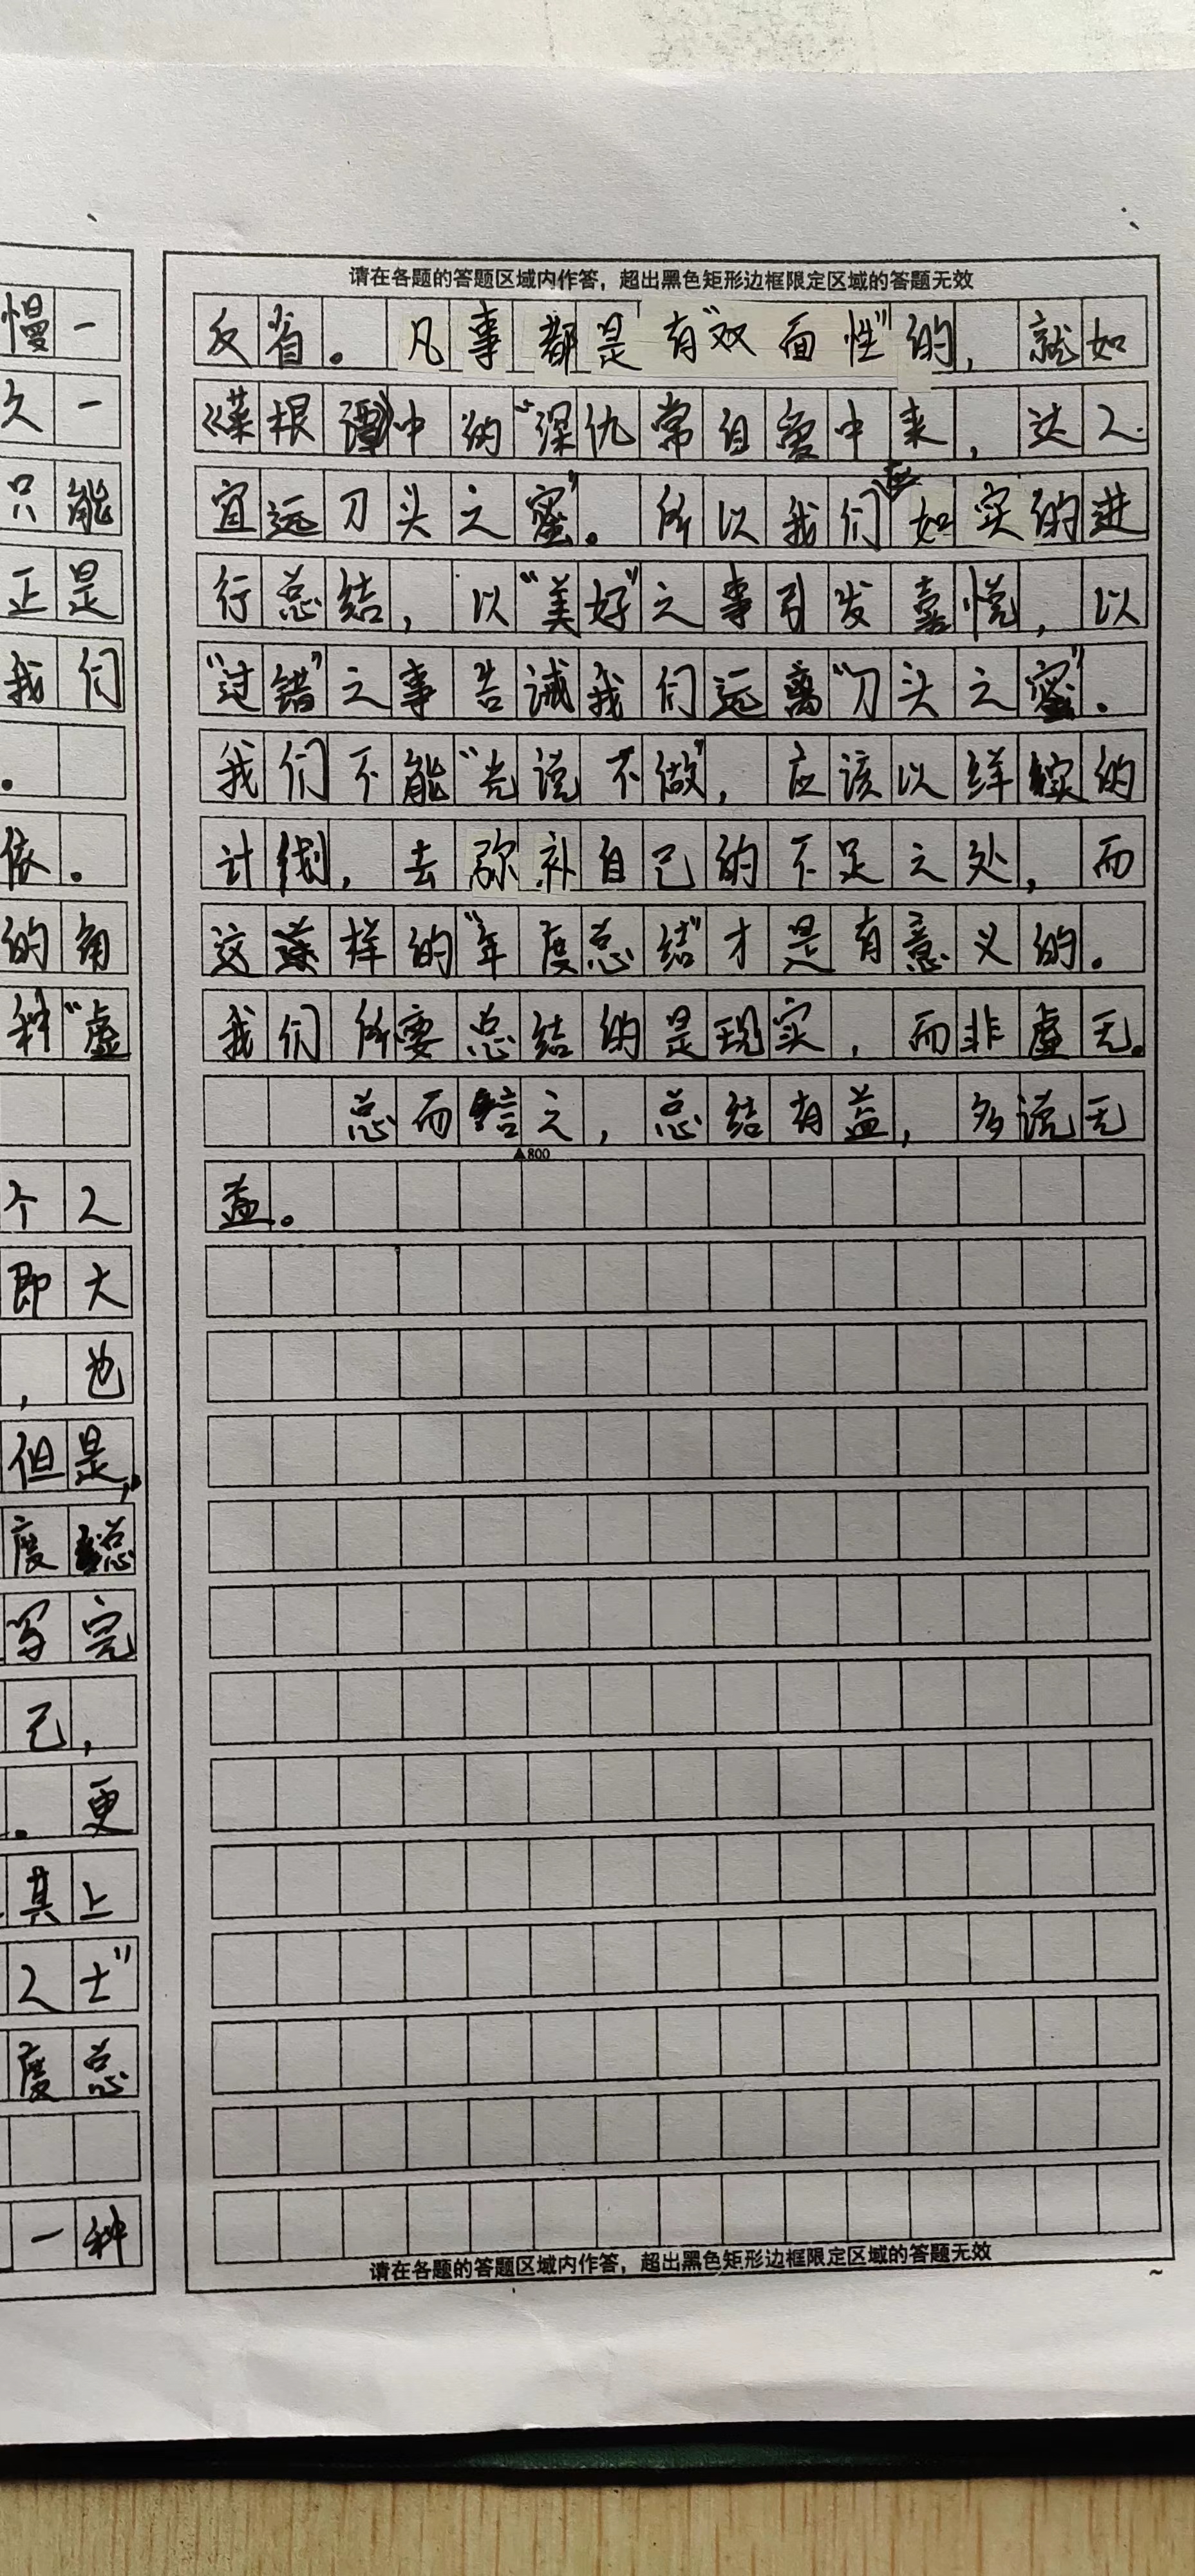 慢一
久一
只能
正是
我们
。
依。
的角
种“虚
个人
即大
,也
但是,
度总
写完
己,
。更
其上
人士”
度总
一种
请在各题的答题区域内作答,超出黑色矩形边框限定区域的答题无效
反省。凡事都是有“双面性”的,就如
《菜根谭》中的“深仇常自爱中来,达人
宜远刀头之蜜”。所以我们应如实的进
行总结,以“美好”之事引发喜悦,以
“过错”之事告诫我们远离“刀头之蜜”.
我们不能“光说不做”,应该以详实的
计划,去弥补自己的不足之处,而
这样的“年度总结”才是有意义的。
我们所要总结的是现实,而非虚无。
总而言之,总结有益,多说无
▲800
益。
请在各题的答题区域内作答,超出黑色矩形边框限定区域的答题无效